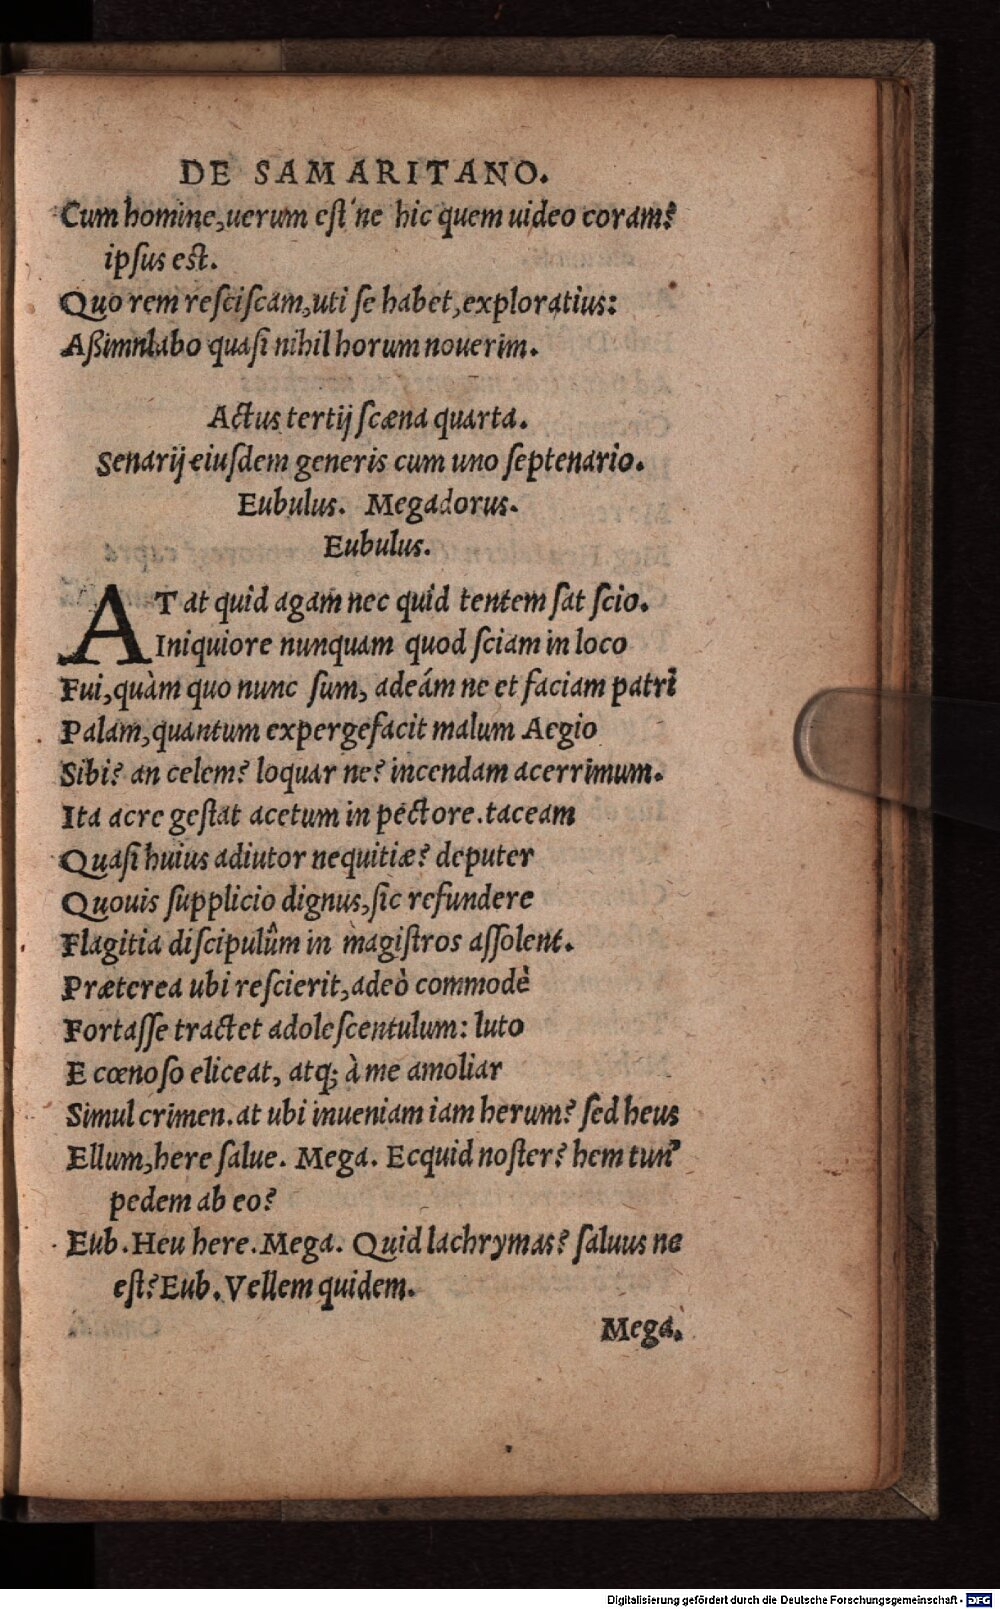 DE SAMARITANO.
Cum homine,uerum eſt'ne hic quem uideo coram?
ipſus est.
Quo rem reſciſcam,uti ſe habet,exploratius:
Aßimnlabo quaſi nihil horum nouerim.
Actus tertij ſcæna quarta.
Senarij eiuſdem generis cum uno ſeptenario.
Eubulus. Megadorus.
Eubulus.
AT at quid agam nec quid tentem ſat ſcio.
Iniquiore nunquam quod ſciam in loco
Fui,quàm quo nunc ſum, adeám ne et faciam patri
Palam,quantum expergefacit malum Aegio
Sibi? an celem? loquar ne? incendam acerrimum.
Ita acre geſtat acetum in pectore.taceam
Quaſi huius adiutor nequitiæ? deputer
Quouis ſupplicio dignus,ſic refundere
Flagitia diſcipulûm in magiſtros aſſolent.
Præterea ubi reſcierit,adeò commodè
Fortaſſe tractet adoleſcentulum: luto
E cœnoſo eliceat, atq; à me amoliar
Simul crimen.at ubi inueniam iam herum? ſed heus
Ellum,here ſalue. Mega. Ecquid noſter? hem tun'
pedem ab eo?
Eub.Heu here.Mega. Quid lachrymas? ſaluus ne
eſt? Eub. Vellem quidem.
Mega.
Digitalisierung gefördert durch die Deutsche Forschungsgemeinschaft - DFG